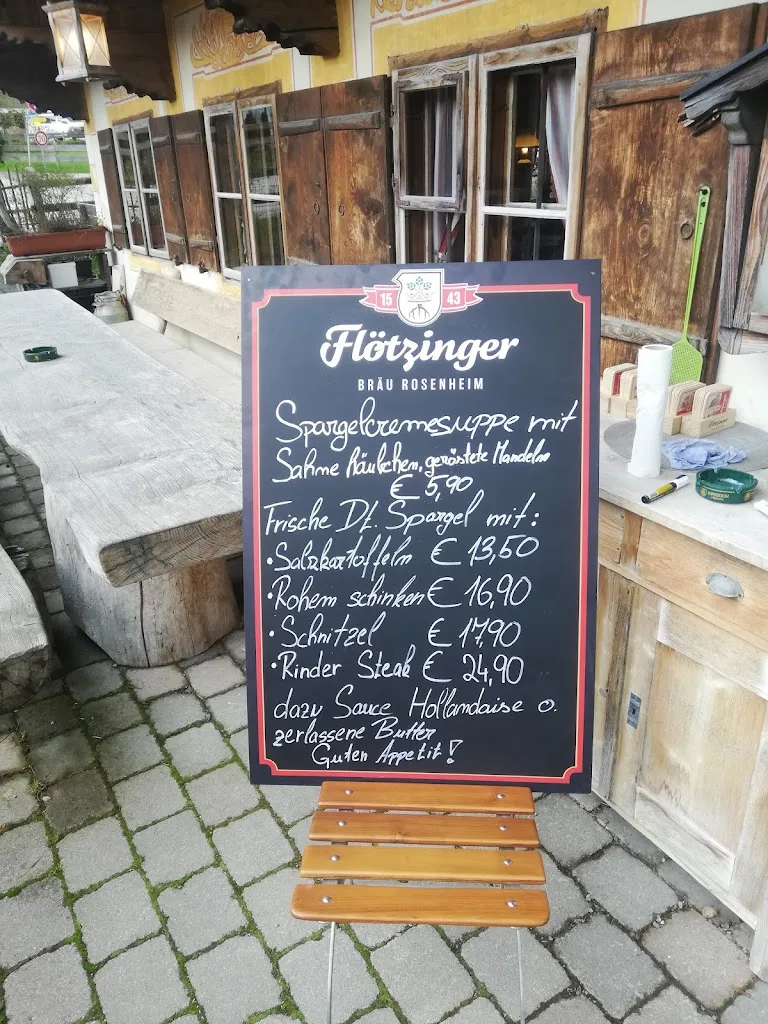 15 43
Flötzinger
BRÄU ROSENHEIM
Spargelcremesuppe mit
Sahne häubchen, geröstete Mandeln
€ 5,90
Frische Dt. Spargel mit:
• Salzkartoffeln € 13,50
• Rohem schinken € 16,90
• Schnitzel € 17,90
• Rinder Steak € 24,90
dazu Sauce Hollandaise o.
zerlassene Butter
Guten Appetit!